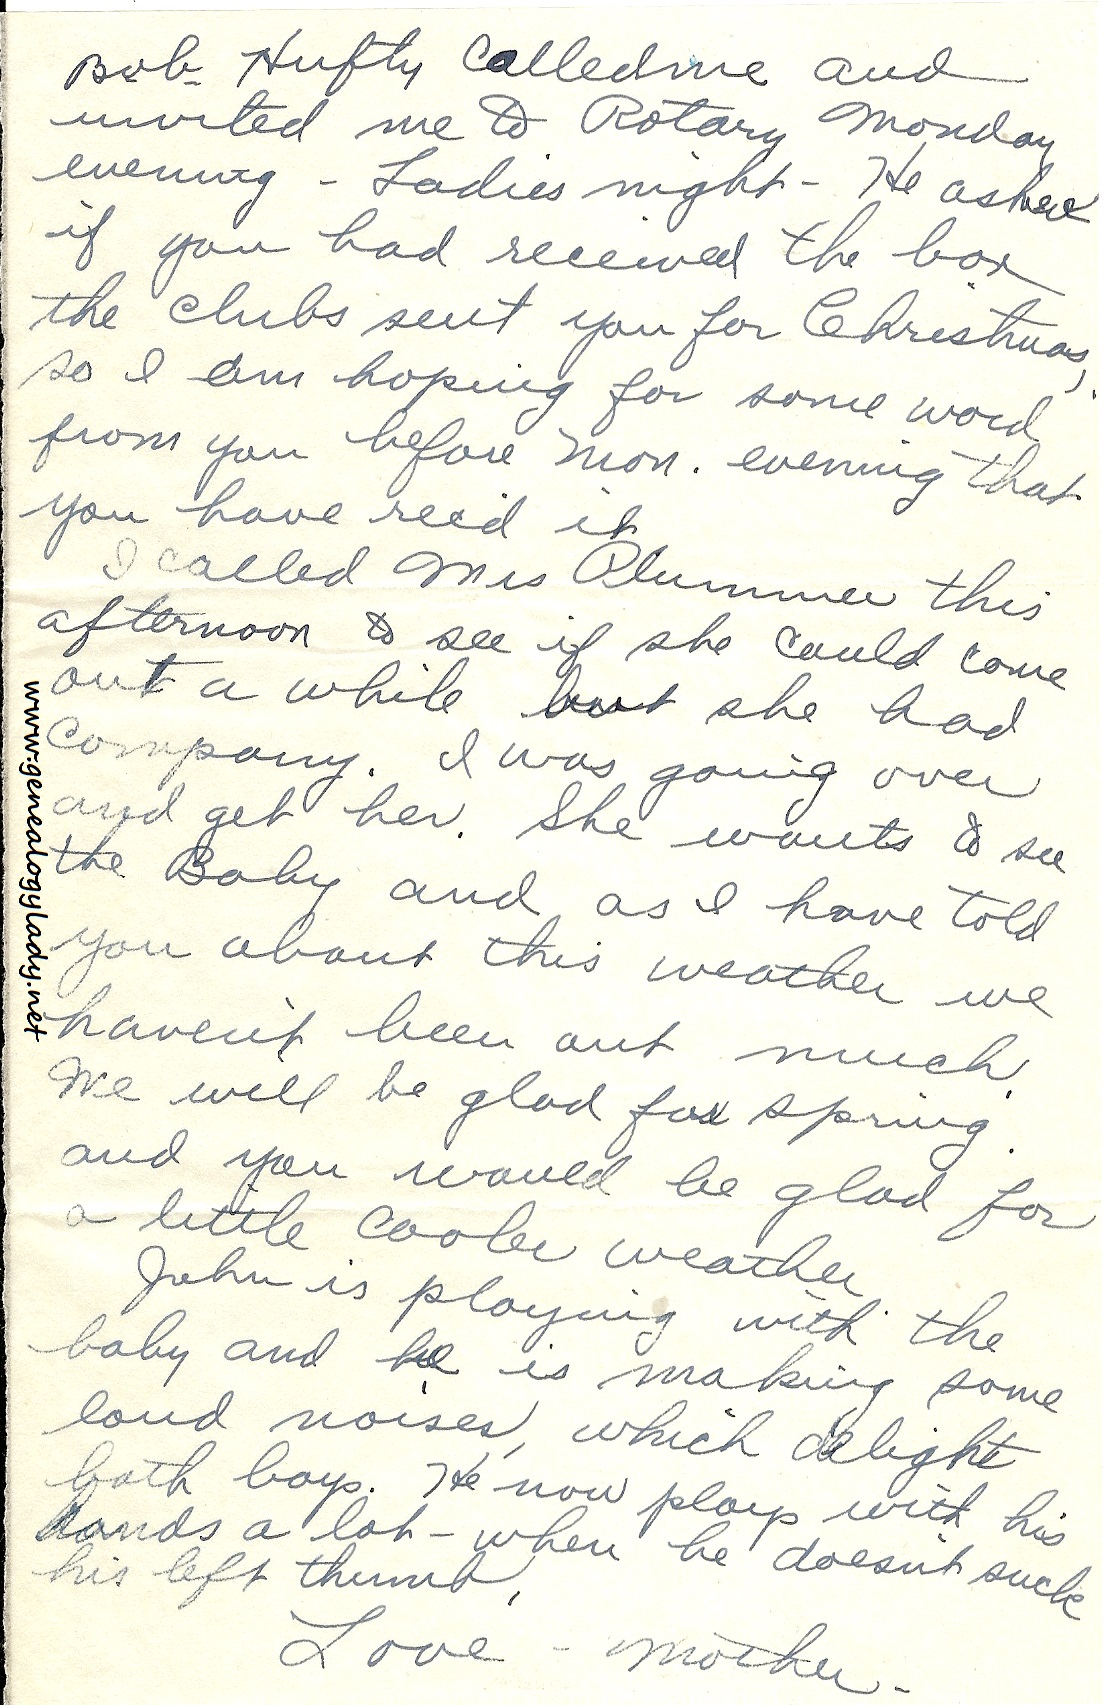 Bob Hufty called me and
invited me to Rotary Monday
evening - Ladies night - He asked
if you had received the box
the clubs sent you for Christmas,
so I am hoping for some word
from you before Mon. evening that
you have rec'd it
I called Mrs Plummer this
afternoon to see if she could come
out a while but she had
company. I was going over
and get her. She wants to see
the Baby and as I have told
you about this weather we
haven't been out much.
We will be glad for spring.
and you would be glad for
a little cooler weather
John is playing with the
baby and he is making some
loud noises, which delight
both boys. He now plays with his
hands a lot - when he doesn't suck
his left thumb.
Love - Mother.
www.genealogylady.net